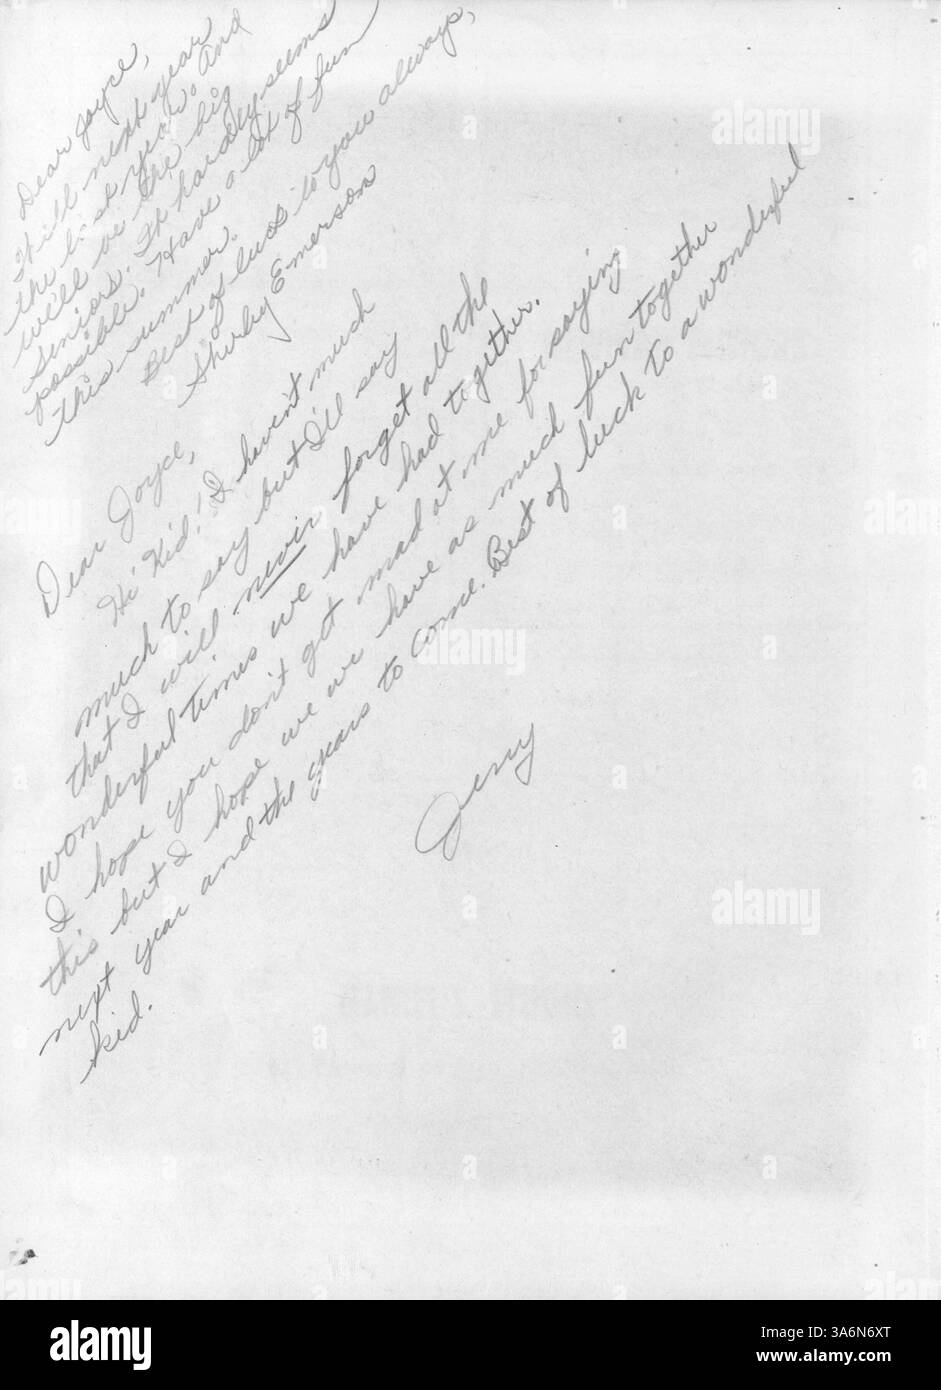 Dear Joyce,
Well next year
the last year and
we'll be the big
seniors. It hardly seems
possible. Have a lot of fun
this summer.
Best of luck to you always,
Shirley Emerson
Dear Joyce,
Hi Kid! I haven't much
much to say but I'll say
that I will never forget all the
wonderful times we have had together.
I hope you don't get mad at me for saying
this but I hope we have as much fun together
next year and the years to come. Best of luck to a wonderful
kid.
Jerry
alamy
alamy
Image ID: 3A6N6XT
www.alamy.com